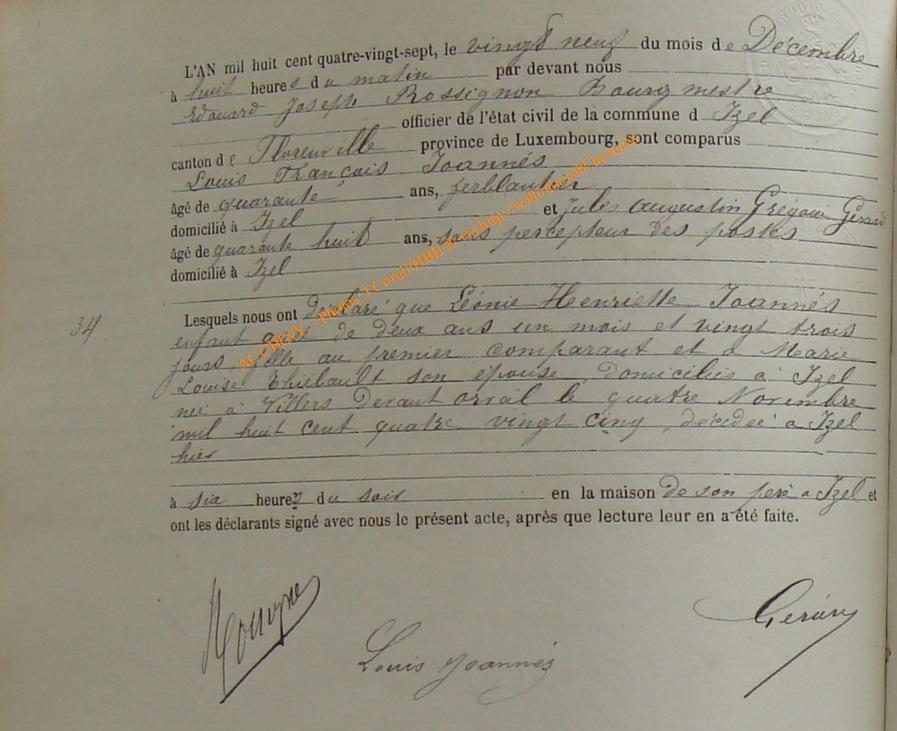 L'AN mil huit cent quatre-vingt-sept, le vingt neuf du mois de Décembre
à huit heures du matin par devant nous
Edouard Joseph Rossignon Bourgmestre
officier de l'état civil de la commune d Izel
canton de Florenville province de Luxembourg, sont comparus
Louis François Joannès
âgé de quarante ans, ferblantier
domicilié à Izel et Jules Augustin Grégoire
âgé de quarante huit ans, sous percepteur des postes
domicilié à Izel
34
Lesquels nous ont déclaré que Léonie Henriette Joannès
enfant de deux ans un mois et vingt trois
jours, fille au premier comparant et à Marie
Louise Thiébault son épouse, domiciliée à Izel
née à Villers devant orval le quatre Novembre
mil huit cent quatre vingt cinq, décédée à Izel
hier
à six heures du soir en la maison de son père a Izel et
ont les déclarants signé avec nous le présent acte, après que lecture leur en a été faite.
Louis Joannès